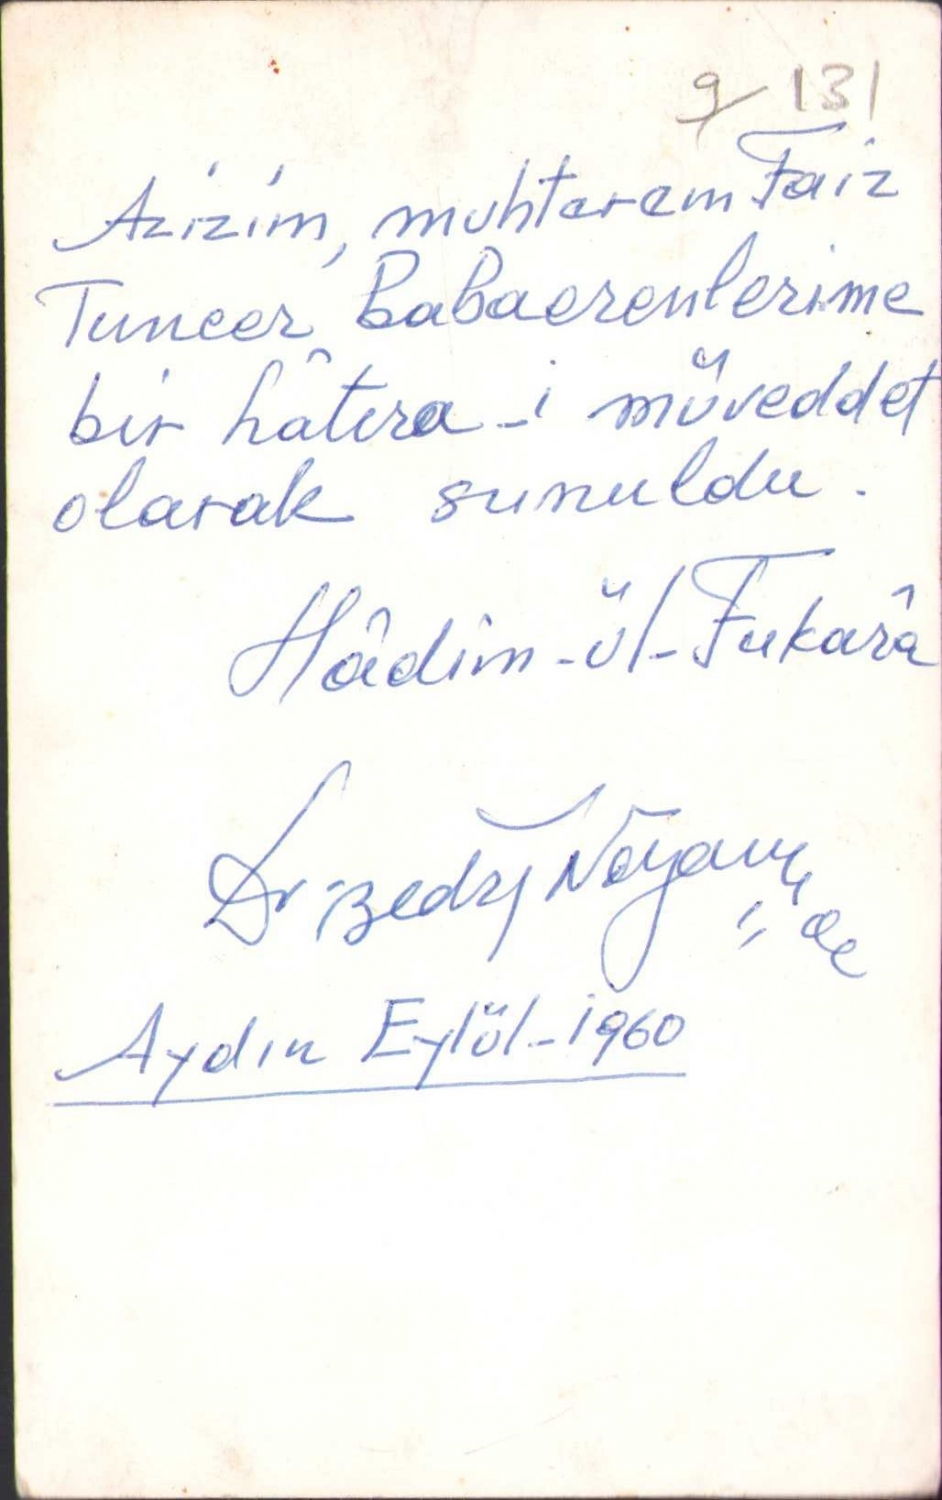 9/131
Azizim, muhterem Faiz
Tuncer Babaerenlerime
bir hâtıra-i müveddet
olarak sunuldu.
Hâdim-ül-Fukarâ
Dr. Bedri Noyan
Aydın Eylül-1960